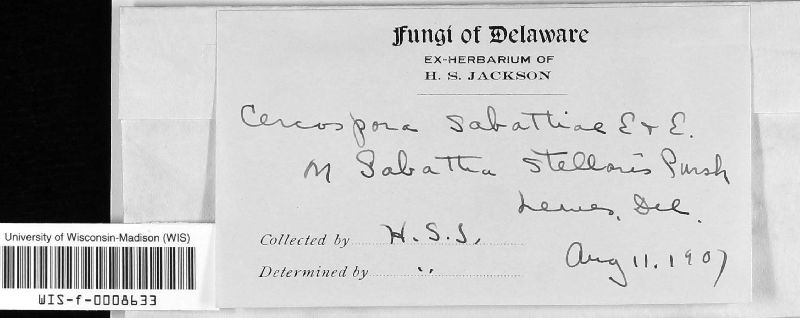 Fungi of Delaware
EX-HERBARIUM OF
H. S. JACKSON
Cercospora Sabattiae E & E.
on Sabattia stellaris Pursh
Lewes, Del.
Collected by H. S. J.
Aug 11. 1907
Determined by "
University of Wisconsin-Madison (WIS)
WIS-f-0008633